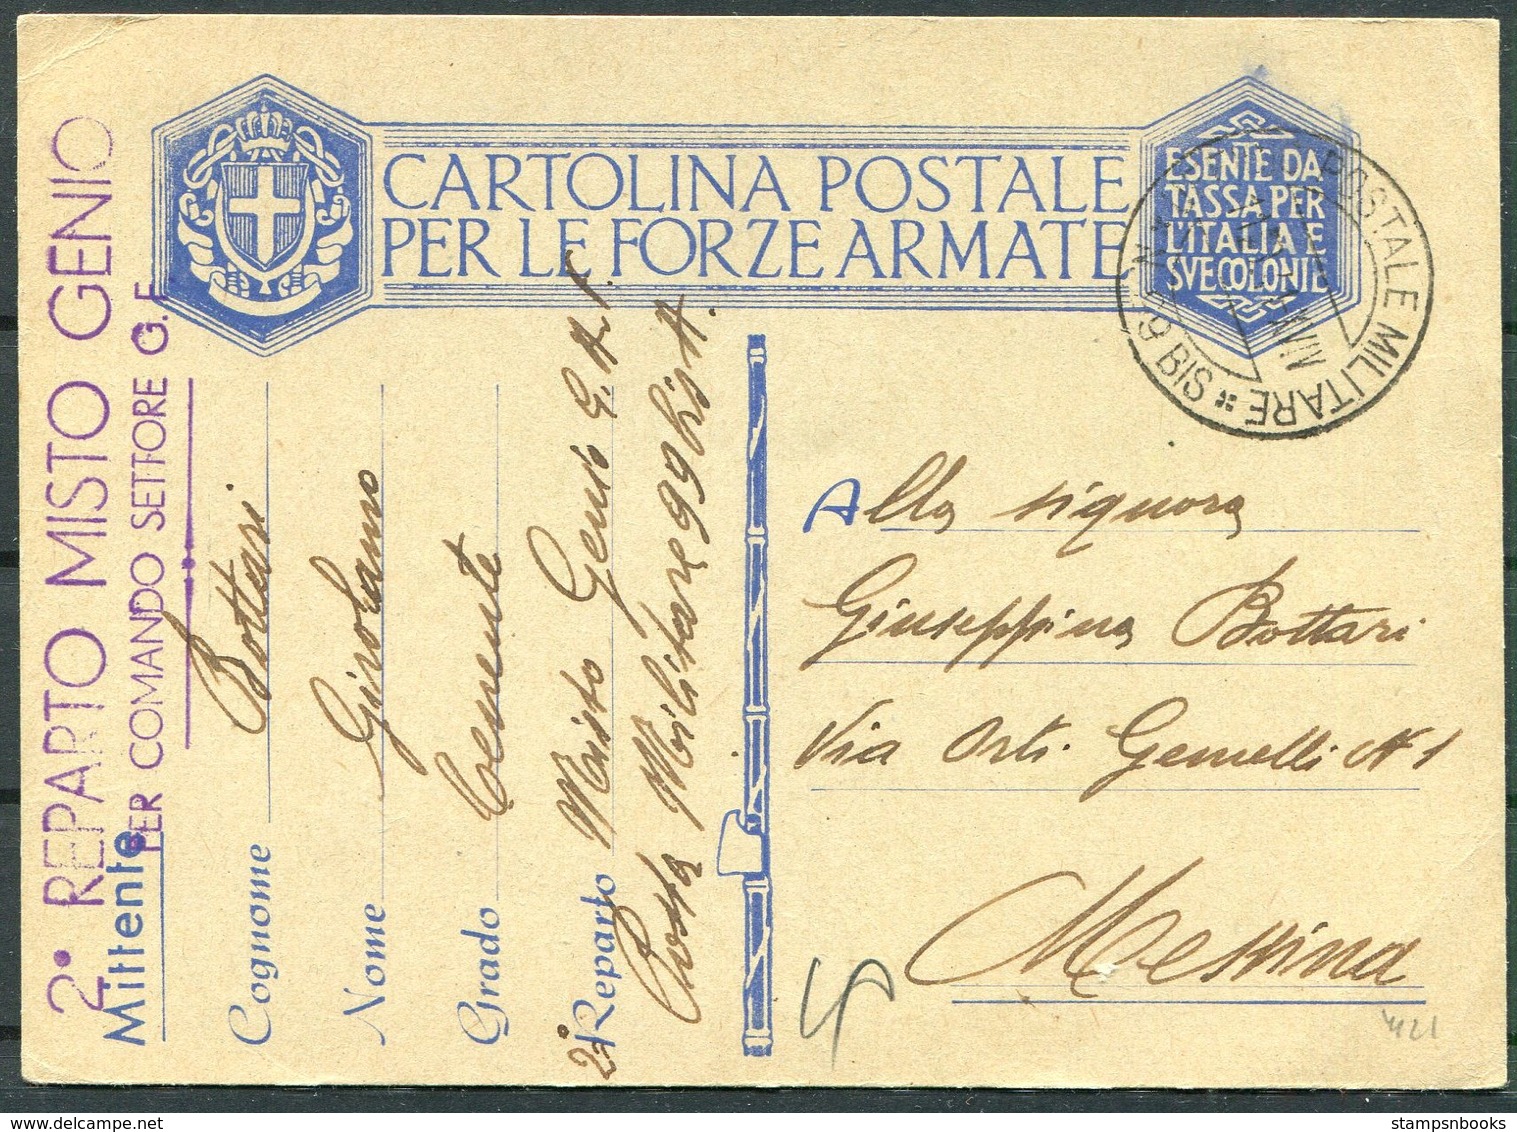 CARTOLINA POSTALE
PER LE FORZE ARMATE
ESENTE DA
TASSA PER
L'ITALIA E
SVE COLONIE
POSTALE MILITARE * 99 BIS
2° REPARTO MISTO GENIO
PER COMANDO SETTORE G.F.
Mittente
Cognome Bottari
Nome Girolamo
Grado Tenente
2° Reparto Misto Genio G.A.F.
Posta Militare 99 bis A.
Alla signora
Giuseppina Bottari
Via Orti Gemelli N 1
Messina
4121
stampsnbooks